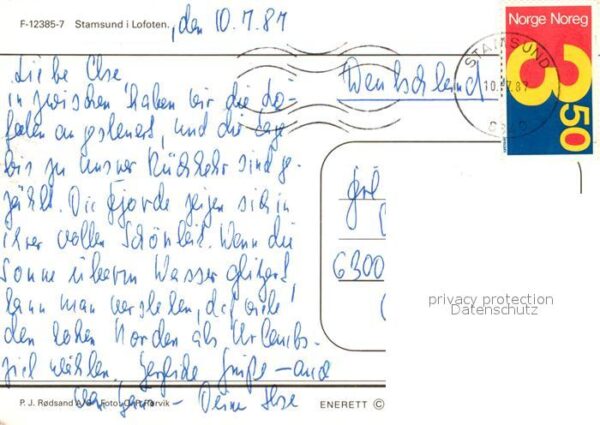 F-12385-7 Stamsund i Lofoten.
, den 10.7.87
Norge Noreg
3 50
STAMSUND
10.7.87
Deutschland
Liebe Else,
inzwischen haben wir die Lo-
foten angesteuert, und die Tage
bis zu unsrer Rückkehr sind ge-
zählt. Die Fjorde zeigen sich in
ihrer vollen Schönheit. Wenn die
Sonne überm Wasser glitzert
kann man verstehen, daß viele
den hohen Norden als Urlaubs-
ziel wählen. Herzliche Grüße – and
von – Deine Ilse
6300
privacy protection
Datenschutz
P. J. Rødsand A/S Foto: O. P. Rørvik
ENERETT ©